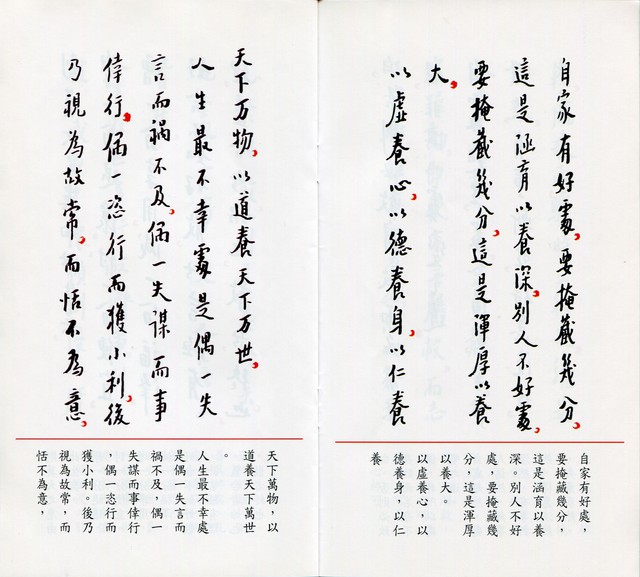 自家有好處，要掩藏幾分，
這是涵育以養深，別人不好處，
要掩藏幾分，這是渾厚以養
大，
以虛養心，以德養身，以仁養
自家有好處，
要掩藏幾分，
這是涵育以養
深。別人不好
處，要掩藏幾
分，這是渾厚
以養大。
以虛養心，以
德養身，以仁
養
天下万物，以道養天下万世，
人生最不幸處是偶一失
言而禍不及，偶一失謀而事
倖行，偶一恣行而獲小利，後
乃視為故常，而恬不為意，
天下萬物，以
道養天下萬世
。
人生最不幸處
是偶一失言而
禍不及，偶一
失謀而事倖行
，偶一恣行而
獲小利。後乃
視為故常，而
恬不為意，